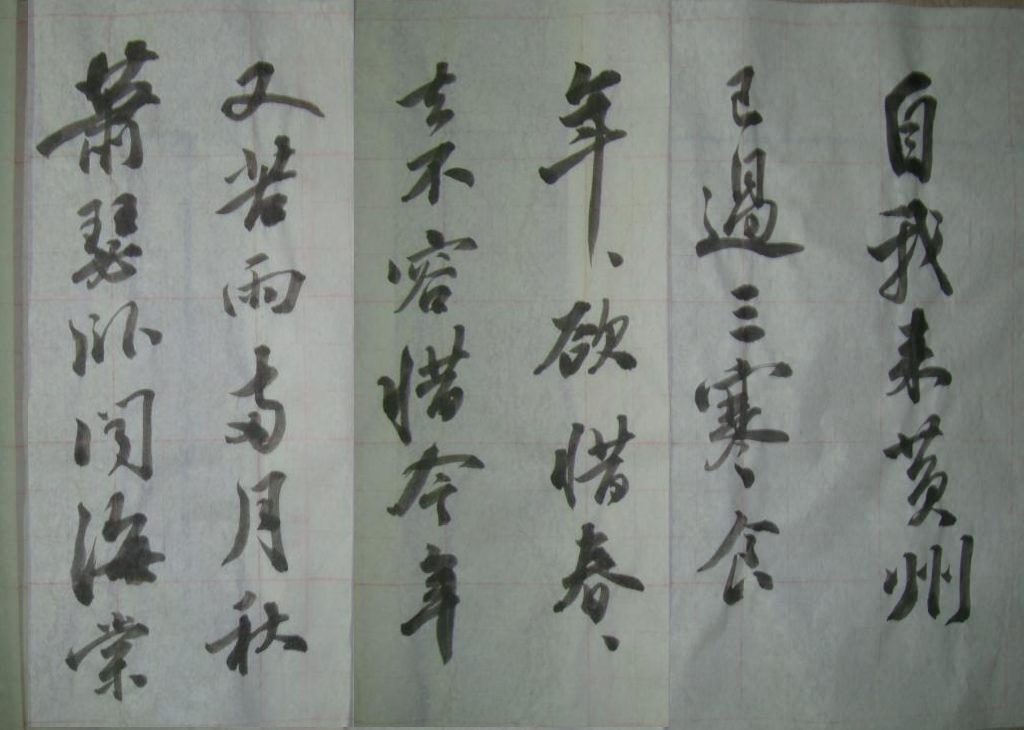 自我来黄州
已過三寒食
年、欲惜春、
去不容惜今年
又苦雨两月秋
蕭瑟卧闻海棠